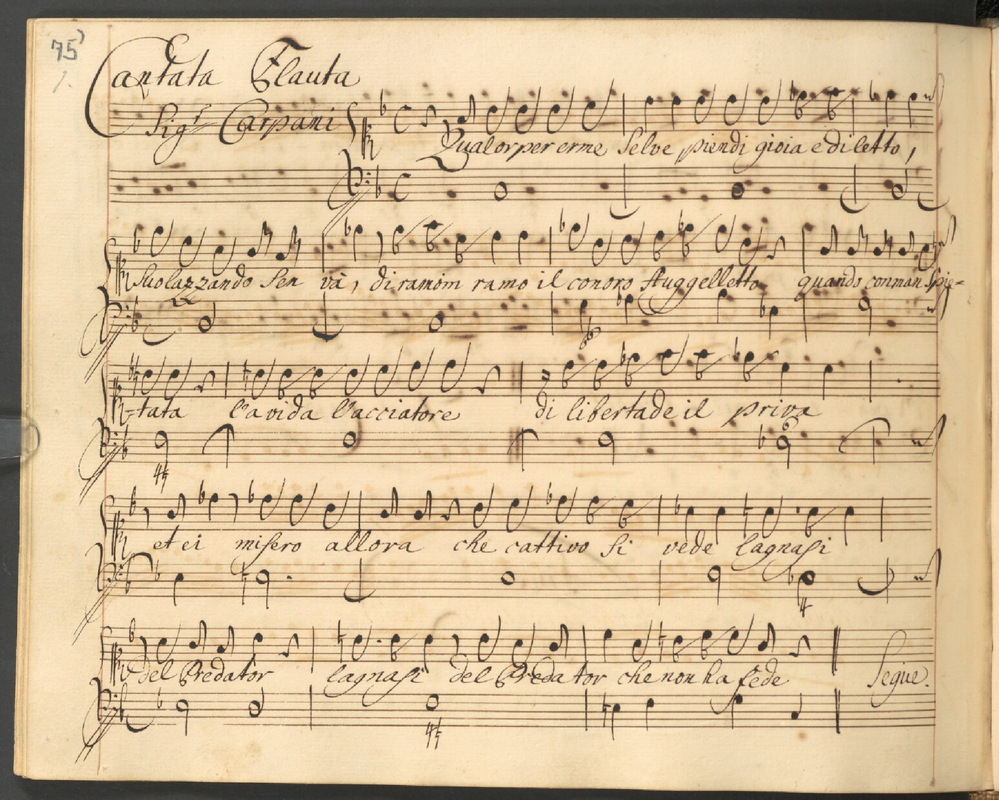 75)
1.
Cantata Flauta
Sig.r Carpani
Qualor per erme Selve pien di gioia e diletto,
Suolazzando Sen và, di ramoin ramo il conoro Auggelletto quando con man Spie-
tata l'avida l'acciatore di libertade il priva
et ei misero allora che cattivo si vede lagnasi
del Predator lagnasi del Predator che non ha fede Segue.